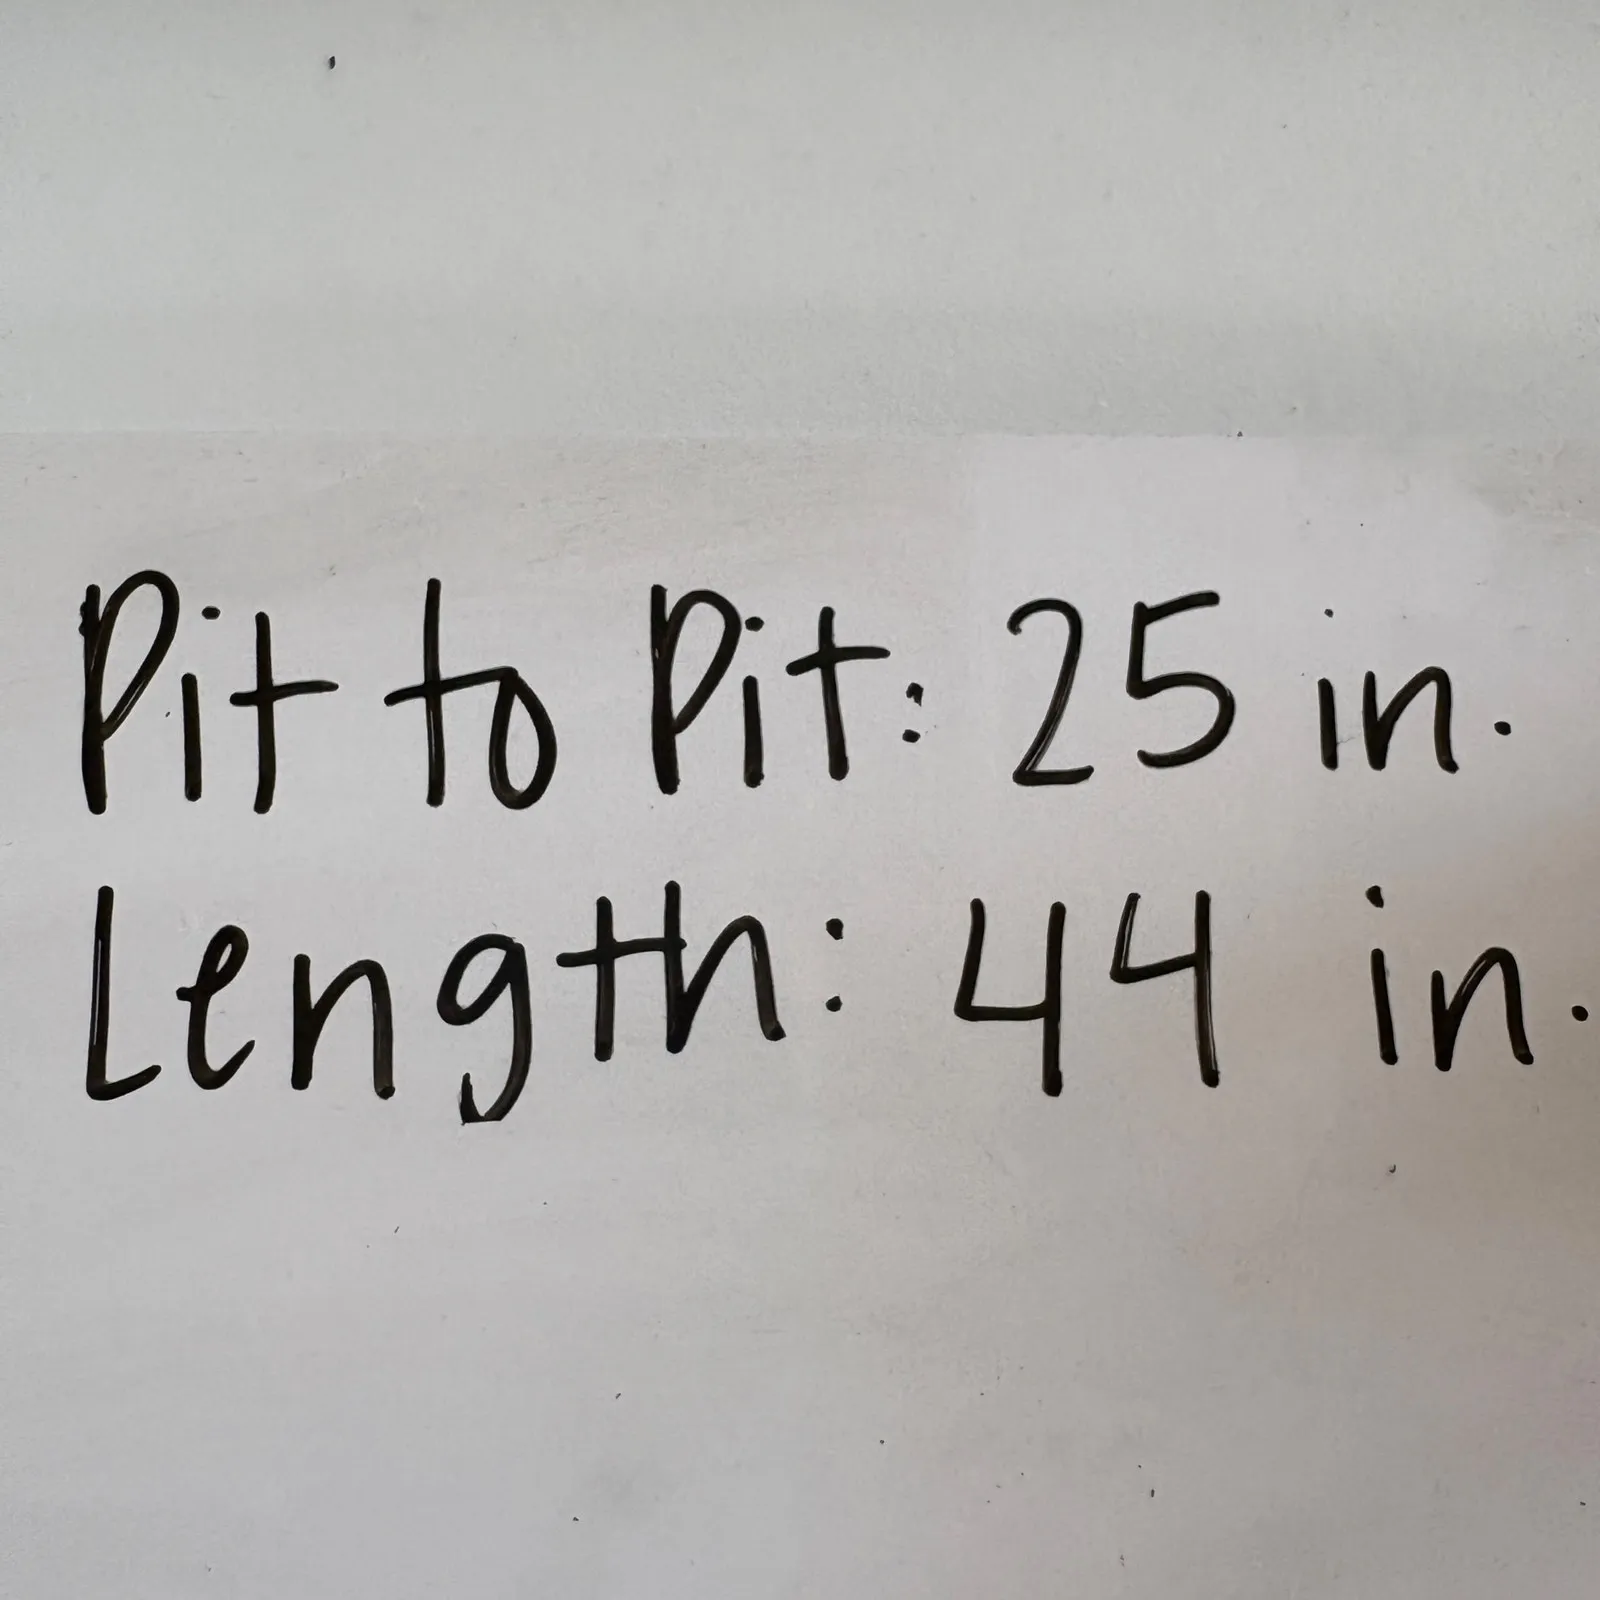 Pit to Pit: 25 in.
Length: 44 in.